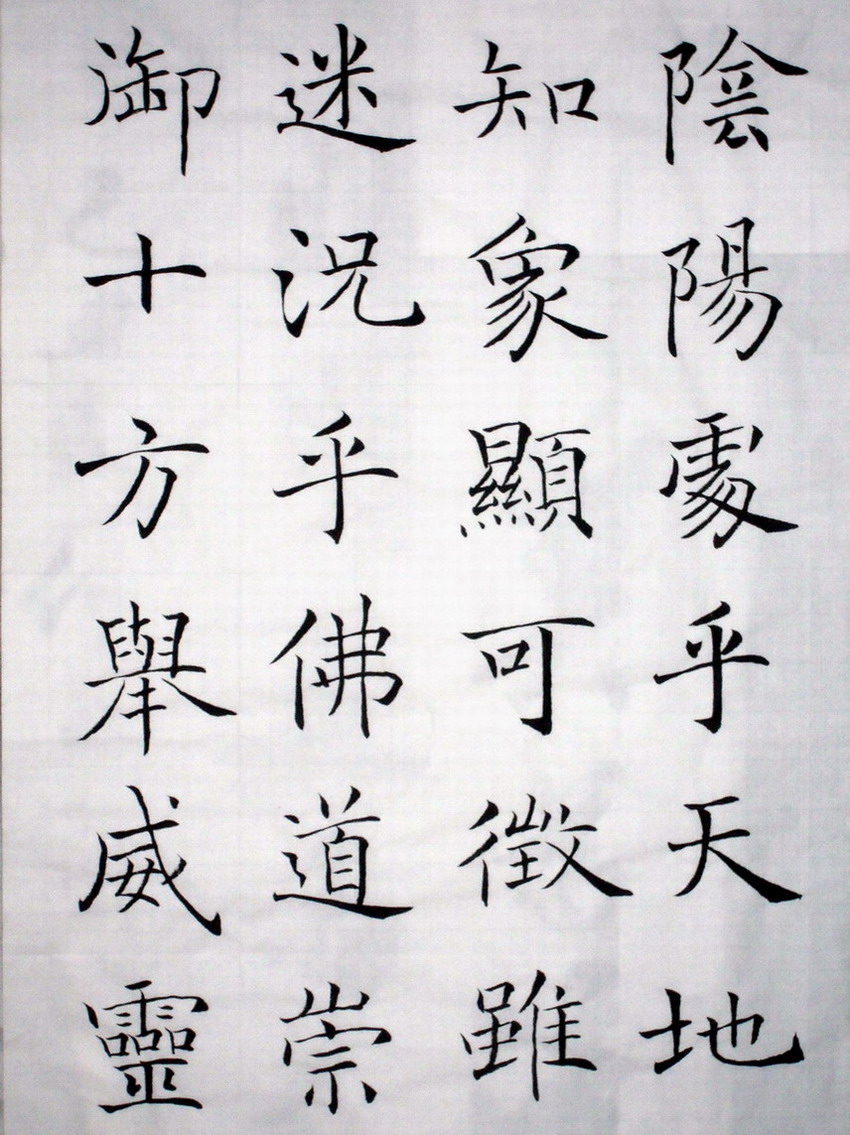 陰陽處乎天地
知象顯可徵雖
迷況乎佛道崇
御十方舉威靈